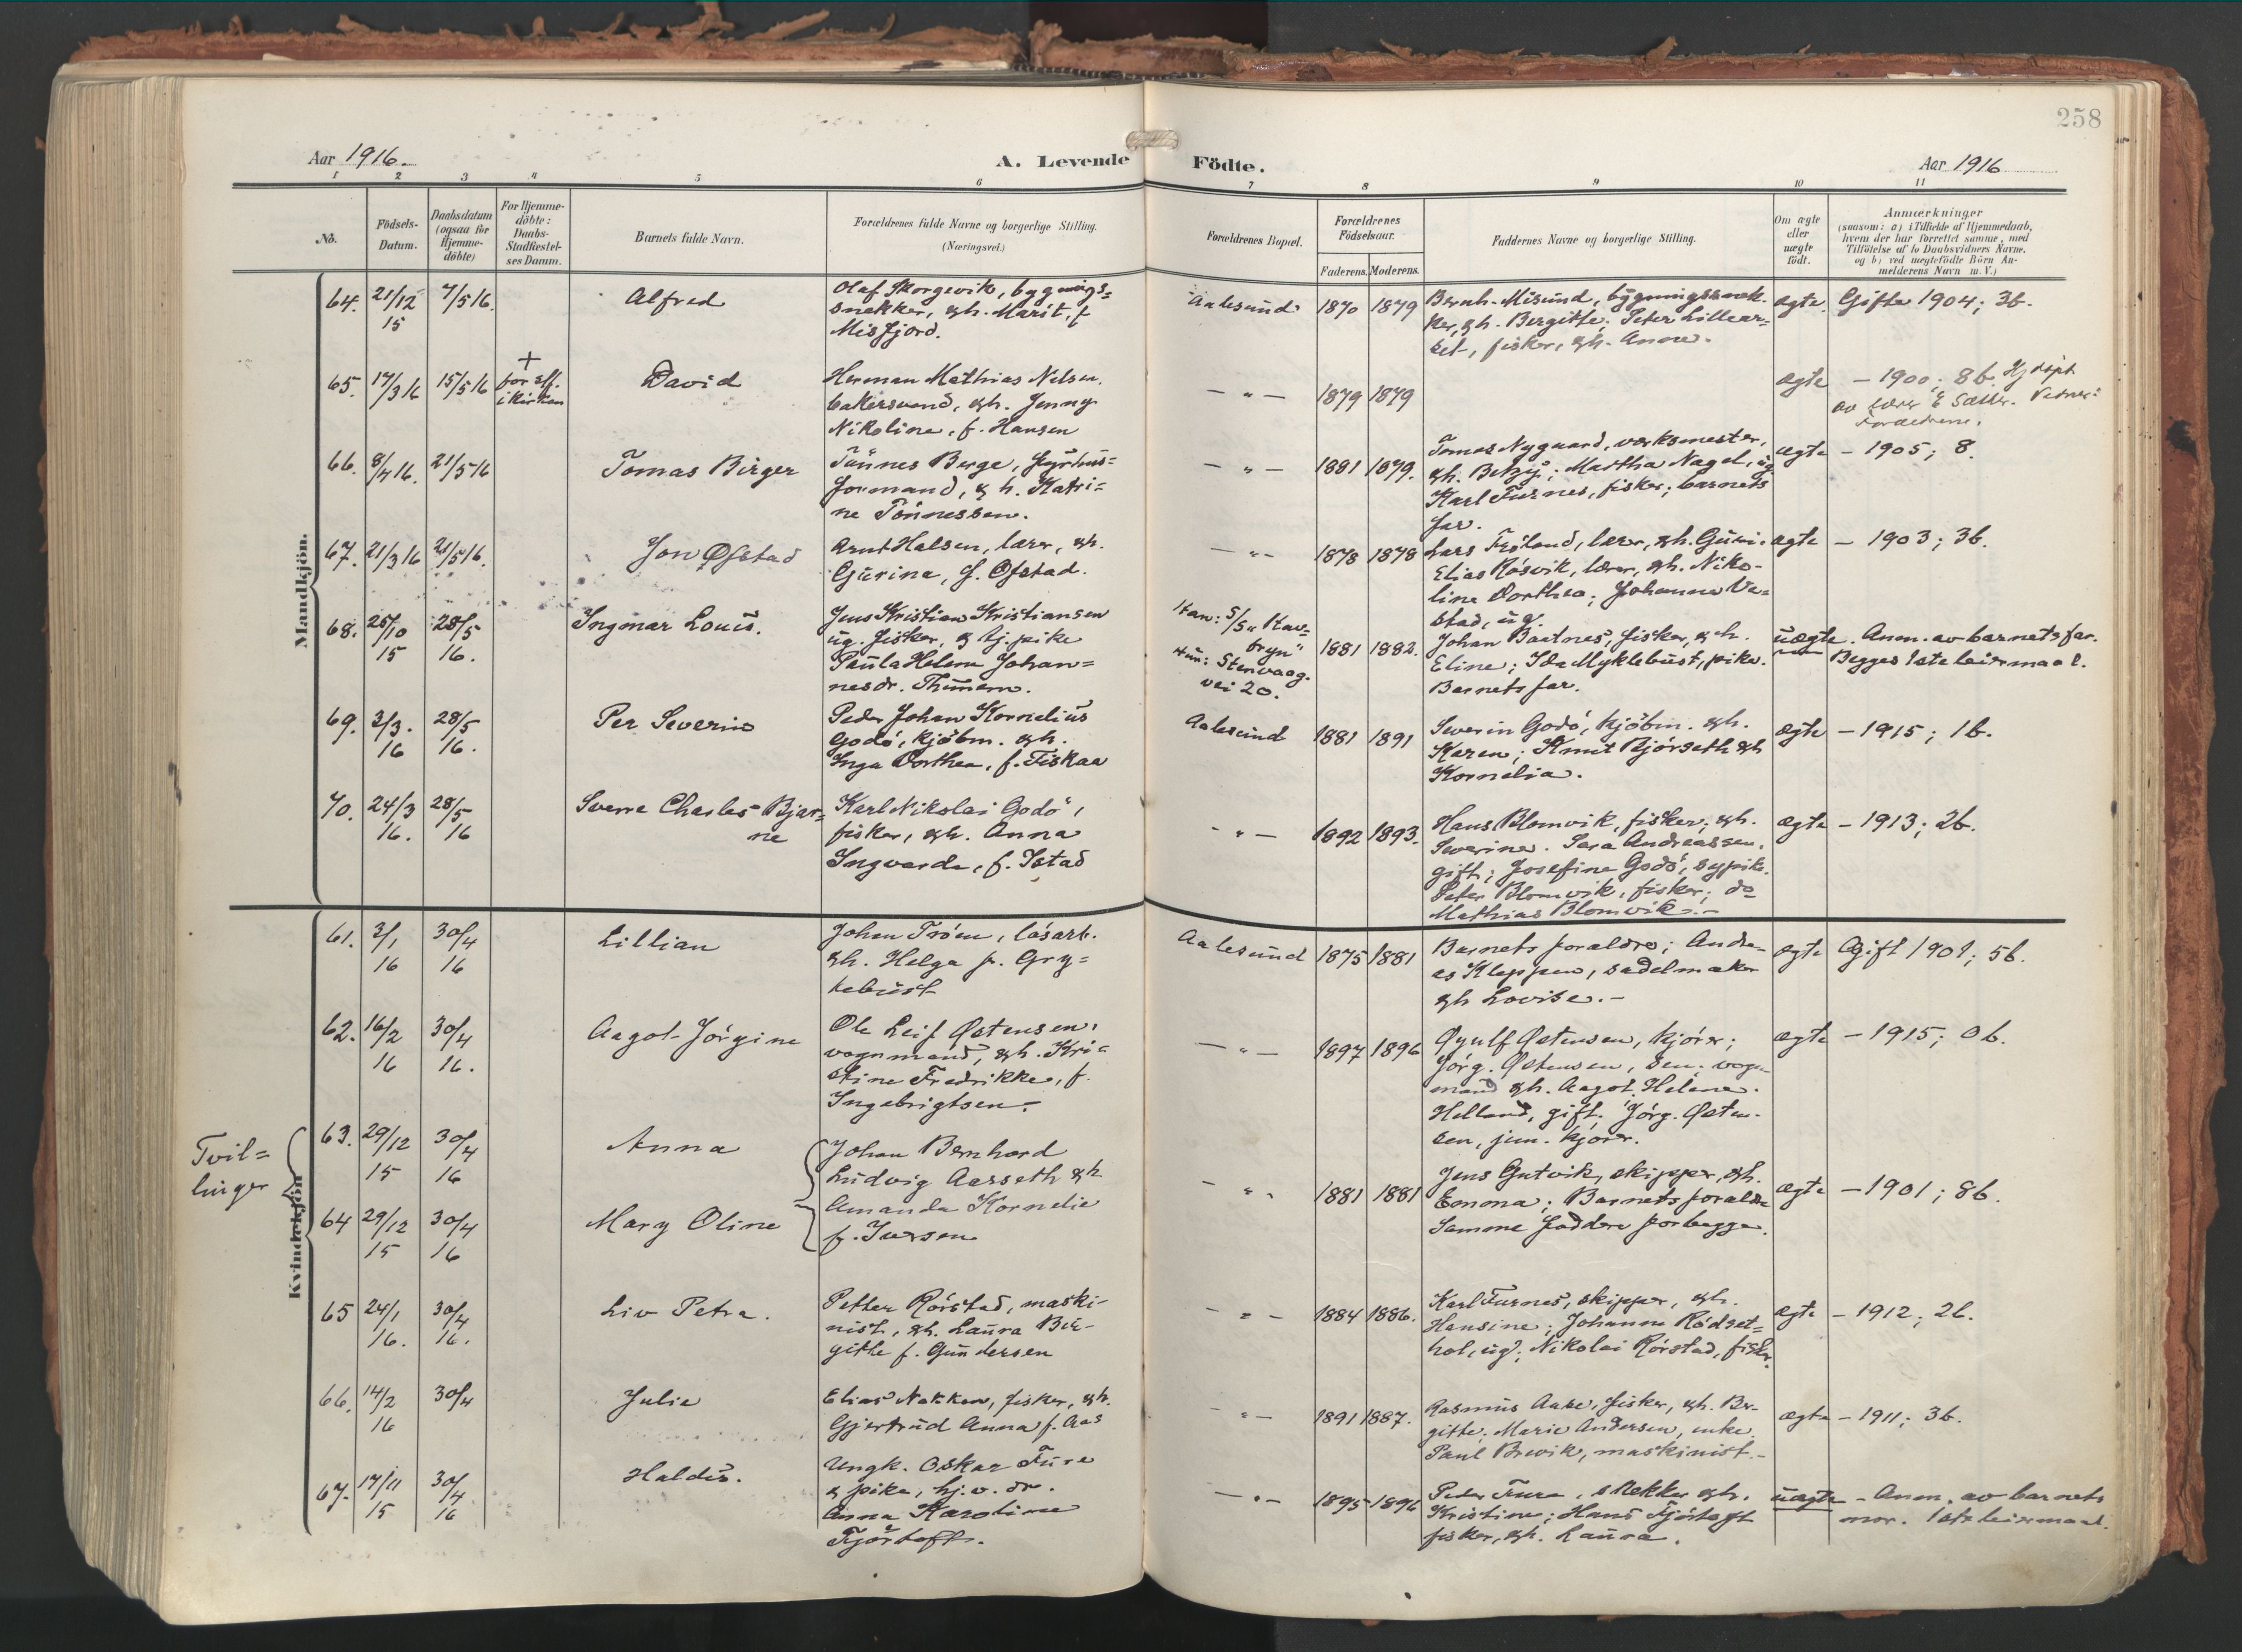 258
Aar 1916.
A. Levende Födte.
Aar 1916
1 2 3 4 5 6 7 8 9 10 11
No.
Födsels-
Datum.
Daabsdatum
(ogsaa for
Hjemme-
döbte)
For Hjemme-
döbte:
Daabs-
Stadfæstel-
ses Datum.
Barnets fulde Navn.
Forældrenes fulde Navne og borgerlige Stilling.
(Næringsvei.)
Forældrenes Bopæl.
Forældrenes
Födselsaar.
Faderens. Moderens.
Faddernes Navne og borgerlige Stilling.
Om ægte
eller
uægte
födt.
Anmærkninger
(saasom: a) i Tilfælde af Hjemmedaab,
hvem der har forrettet samme, med
Tilföielse af to Daabsvidners Navne.
og b) ved uægtefödte Börn An-
melderens Navn m. V.)
Mandkjön.
64. 21/12 15
7/5 16.
Alfred
Olaf Skorgevik, bygnings-
snekker, & h. Marit, f.
Misfjord.
Aalesund
1870 1879
Bernh. Misund, bygningssnek-
ker, & h. Bergitte; Peter Lillear-
ket, fisker, & h. Anne.
ægte.
Gifte 1904; 3b.
65. 17/3 16
15/5 16
+
for
i kirken
David
Herman Mathias Nelsen,
bakersvend, & h. Jenny
Nikoline, f. Hansen
— " —
1879 1879
ægte
— 1900; 8b. Hj.döpt
av lærer E. Sætter. Vidner:
Forældrene.
66. 8/4 16.
21/5 16
Tomas Birger
Tönnes Berge, fyrhus-
formand, & h. Katri-
ne Tönnessen.
— " —
1881 1879.
Tomas Nygaard, verksmester,
& h. Betzy; Martha Nagel, ug.
Karl Furnes, fisker; barnets
far.
ægte
— 1905; 8.
67. 21/3 16
21/5 16.
Jon Øfstad
Arnt Halsen, lærer, & h.
Gurina, f. Øfstad.
— " —
1878 1878
Lars Fröland, lærer, & h. Guri.
Elias Rösvik, lærer, & h. Niko-
line Dorthea; Johanna Ve-
stad, ug.
ægte
— 1903; 3b.
68. 25/10 15
28/5 16.
Ingmar Louis.
Jens Kristian Kristiansen
ug. fisker, & tj. pike
Paula Helene Johan-
nesdr. Thunem.
Han: S/S "Hav-
bryn"
Hun: Stenvaag-
vei 20.
1881 1882.
Johan Baatnes, fisker, & h.
Eline; Ida Myklebust, pike.
Barnets far.
uægte.
Anm. av barnets far.
Begges 1ste leiermaal.
69. 3/3. 16
28/5 16.
Per Severin
Peder Johan Kornelius
Godö, kjöbm. & h.
Inga Dorthea, f. Fiskaa
Aalesund
1881 1891
Severin Godö, kjöbm. & h.
Karen; Knut Bjórseth & h
Kornelia.
ægte
— 1915; 1b.
70. 24/3 16.
28/5 16
Sverre Charles Bjar-
ne
Karl Nikolai Godö,
fisker, & h. Anna
Ingvarda, f. Istad
— " —
1892 1893.
Hans Blomvik, fisker, & h.
Severine. Sara Andreassen,
gift; Josefine Godö, sypike.
Peter Blomvik, fisker; do
Mathias Blomvik. —
ægte
— 1913; 2b.
Kvindekjön
61. 3/1 16
30/4 16
Lillian
Johan Tröen, lösarb.
& h. Helga f. Gry-
tebust
Aalesund
1875 1881
Barnets forældre; Andre-
as Kleppen, sadelmaker
& h Lovise. —
ægte
Gift 1901; 5b.
62. 16/2 16
30/4 16.
Aagot Jörgine
Ole Leif Østensen,
vognmand, & h. Kri-
stine Fredrikke, f.
Ingebrigtsen.
— " —
1897 1896
Øyulf Østensen, kjörer;
Jörg. Østensen, sen. vogn-
mand & h. Aagot. Helene
Helland, gift. Jörg. Østen-
sen, jun. kjörer.
ægte
— 1915; 0b.
Tvil-
linger
63. 29/12 15
30/4 16
Anna
Johan Bernhard
Ludvig Aasseth & h.
64 29/12 15
30/4 16
Mary Oline
Amanda Kornelie
f. Iversen
— " —
1881 1881
Jens Gutvik, skipper, & h.
Emma; Barnets forældre
Samme faddere for begge.
ægte
— 1901; 8b.
65 24/1 16.
30/4 16.
Liv Petra.
Petter Rörstad, maski-
nist, & h. Laura Bir-
gitte f. Gundersen
— " —
1884 1886.
Karl Furnes, skipper, & h.
Hansine; Johanne Rödset-
hol, ug; Nikolai Rörstad, fisker.
ægte
— 1912; 2b.
66. 14/2 16
30/4
Julie
Elias Nakken, fisker, & h.
Gjertrud Anna f. Aas
— " —
1891 1887.
Rasmus Aase, fisker, & h. Ber-
gitte; Marie Andersen, enke.
Paul Brevik, maskinist. —
ægte
— 1911; 3b.
67. 17/11 15
30/4 16
Haldis.
Ungk. Oskar Fure
& pike, hj.v. dr.
Anna Karoline
Fjörtoft.
— " —
1895 1896
Peder Fure, snekker & h.
Kristine; Hans Fjörtoft
fisker, & h. Laura.
uægte
— Anm. av barnets
mor. 1ste leiermaal.